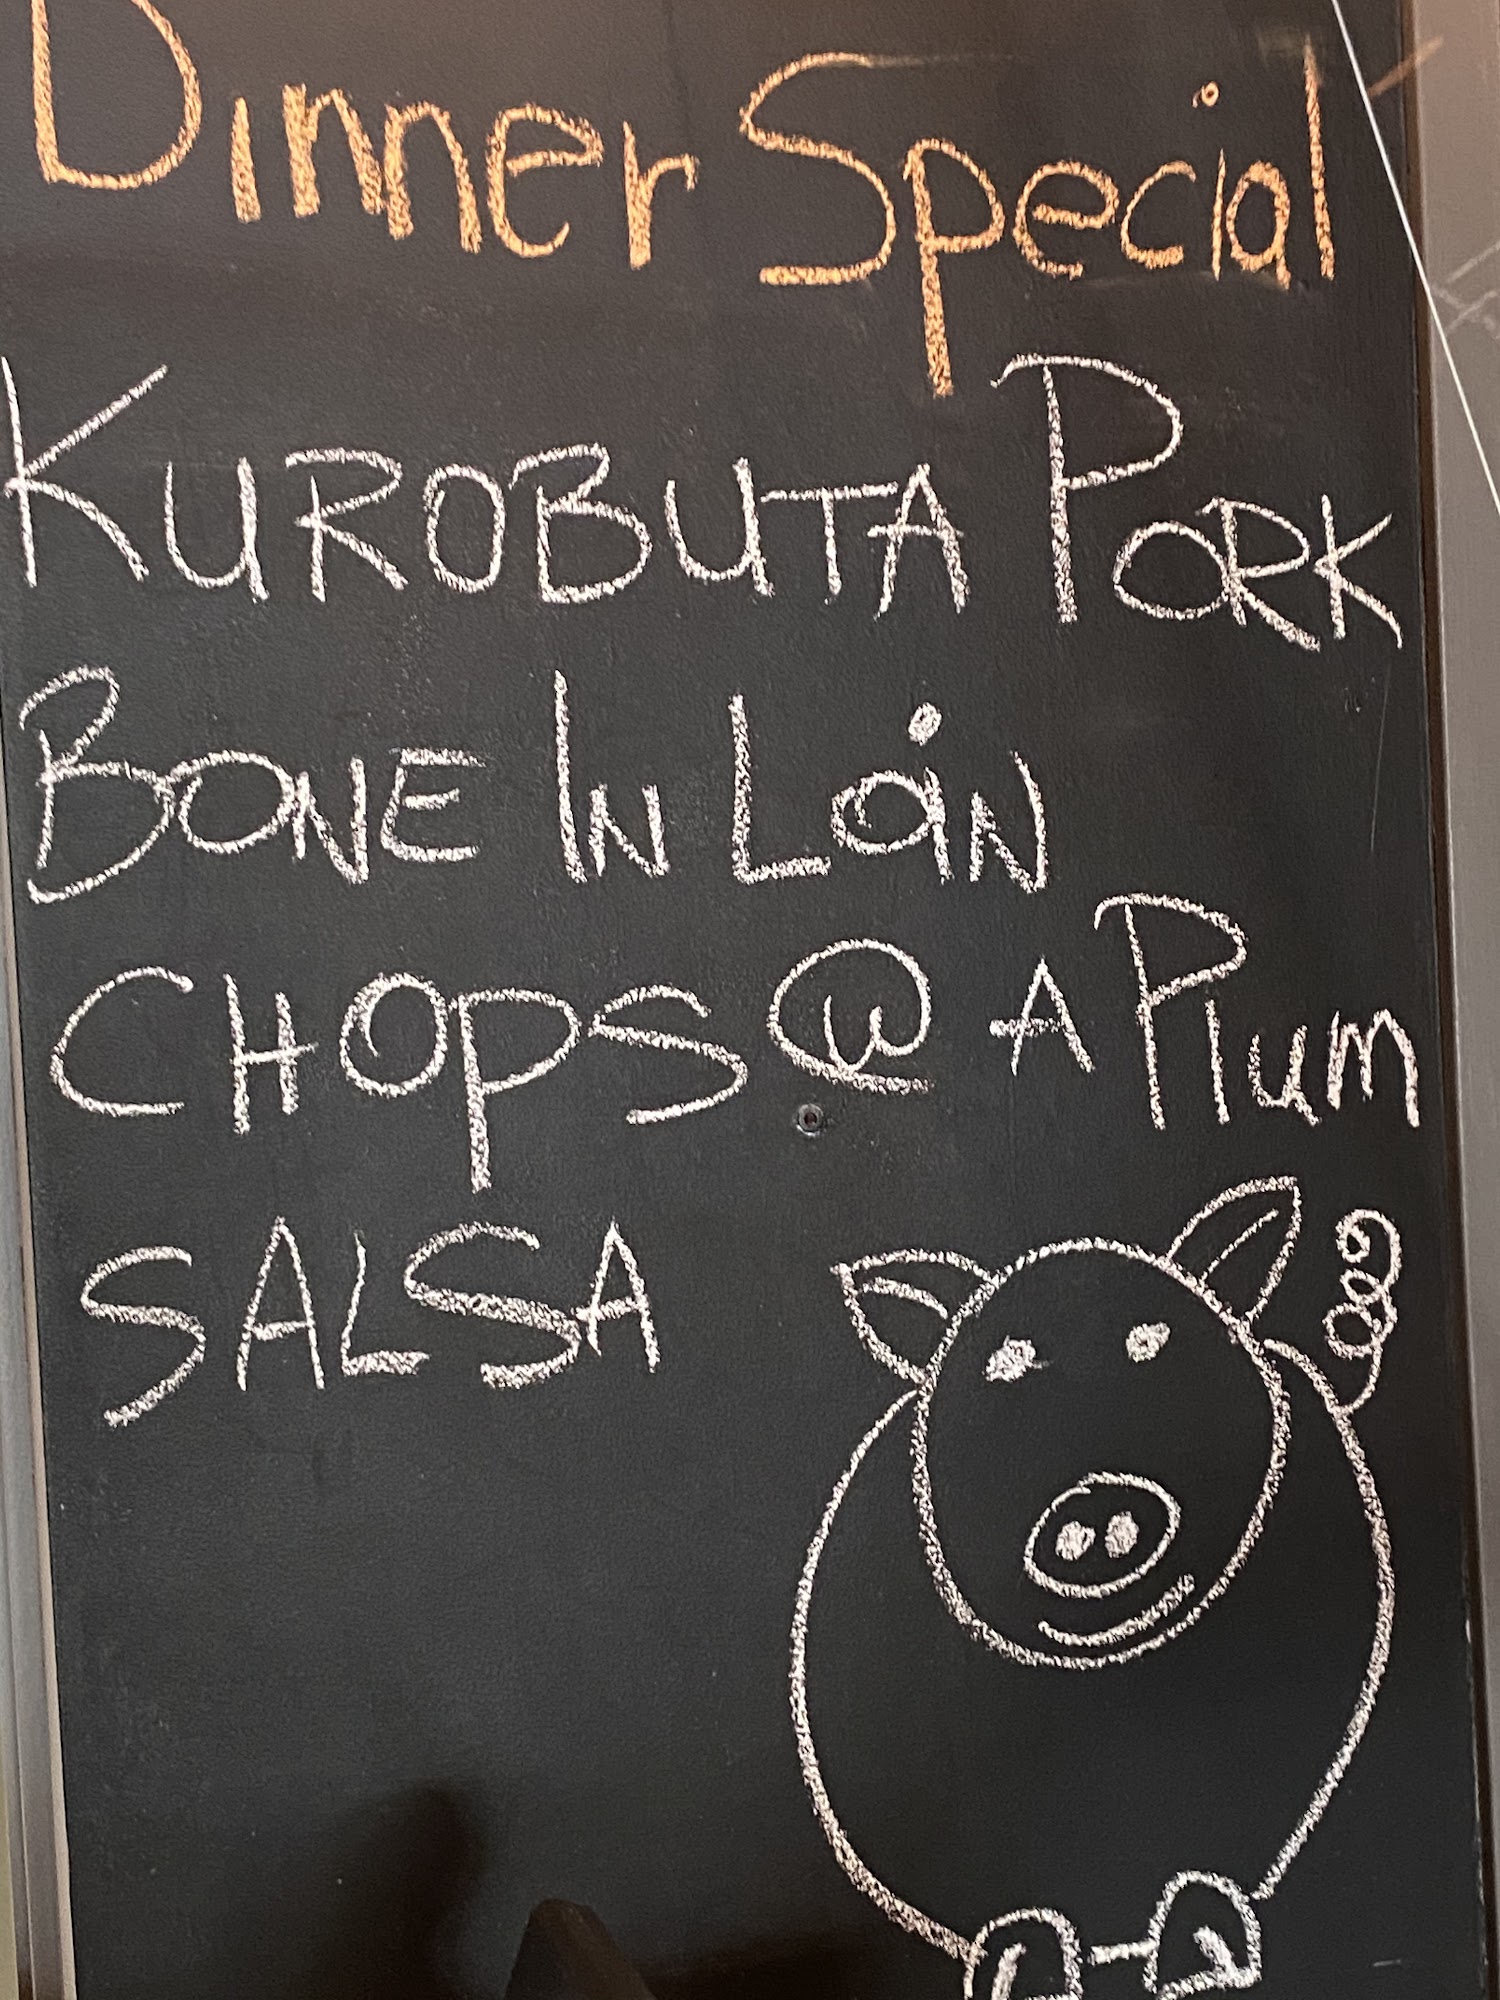 Dinner Special
KUROBUTA PORK
BONE IN LOiN
CHOPS @ A Plum
SALSA